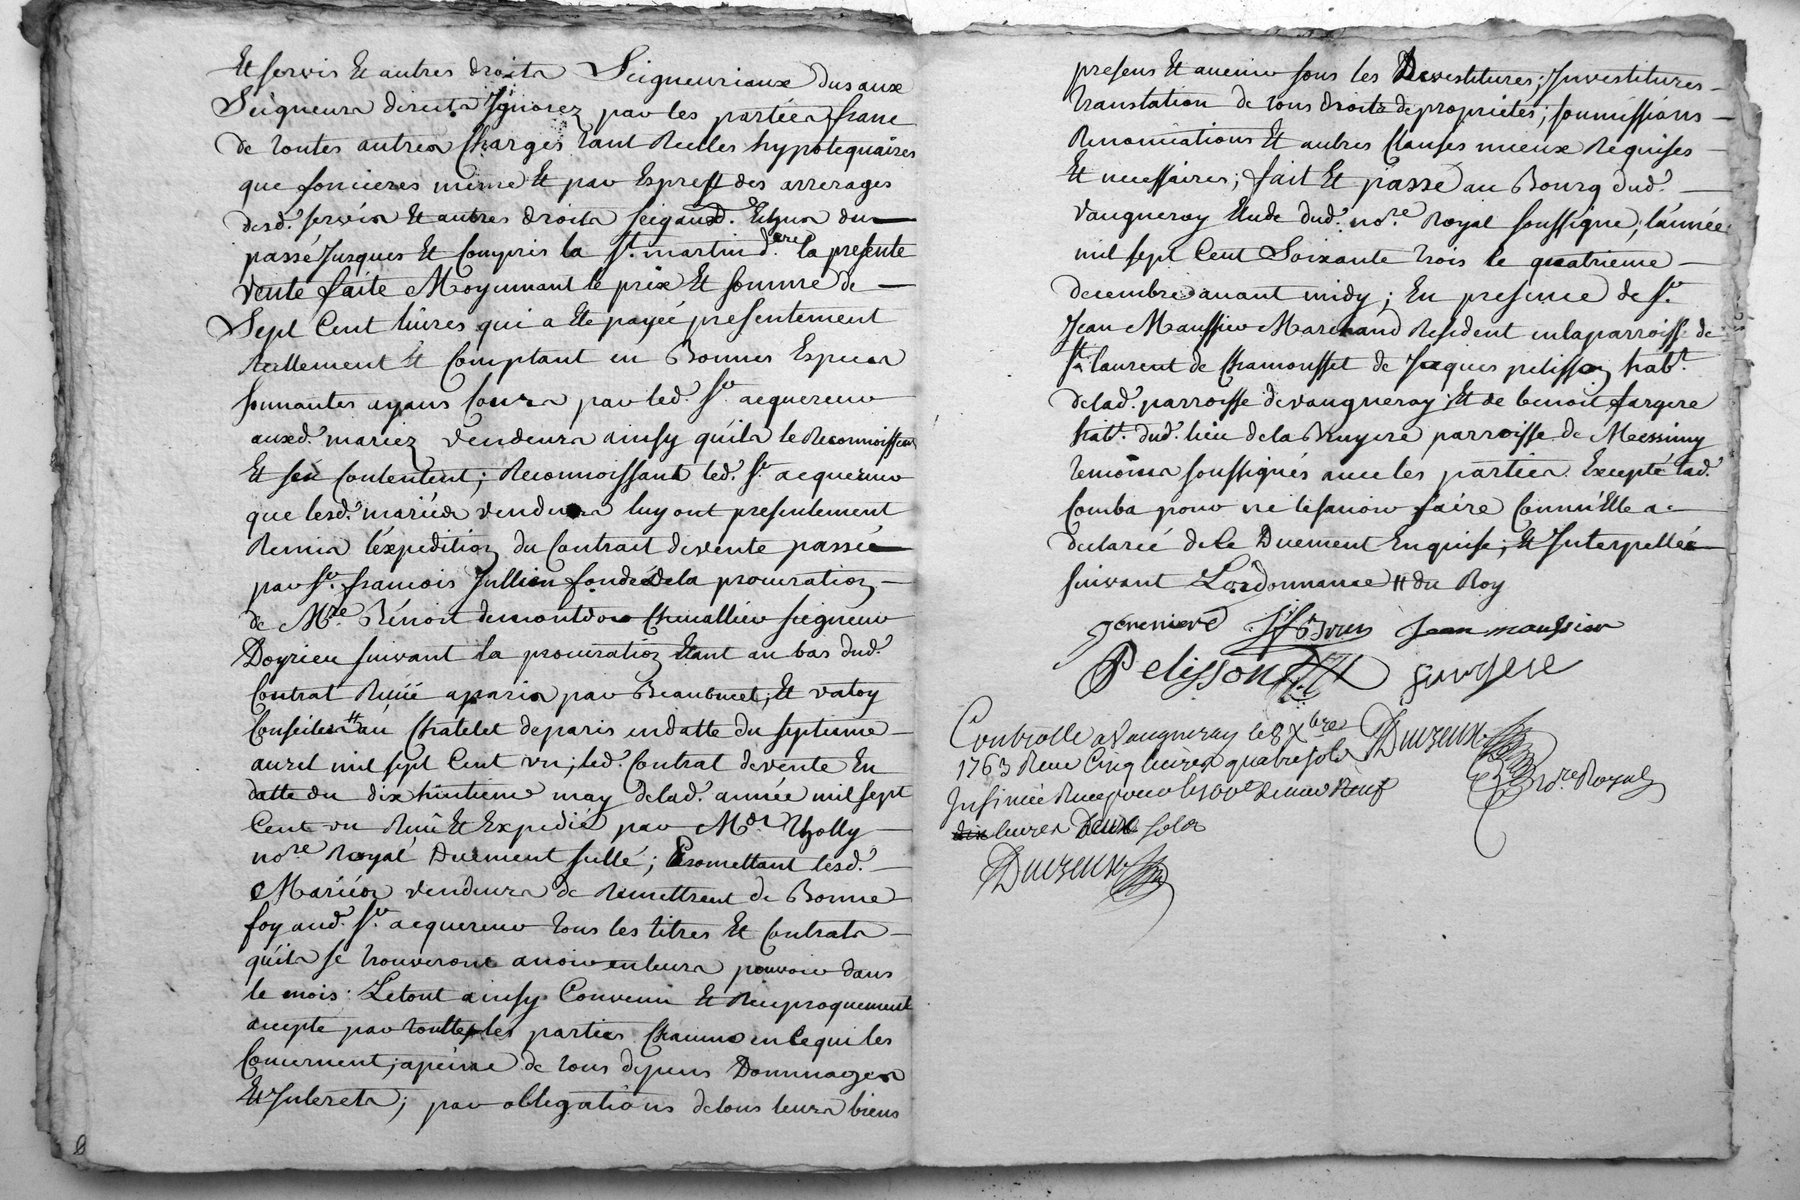 Et servis Et autres droits Seigneuriaux dus aux
Seigneurs directs Ignorez par les parties franc
de toutes autres Charges tant Reelles hypotequaires
que foncieres meme Et par Exprest des arrerages
desd. servis Et autres droits seigaux. Echus du
passé Jusques Et Compris la St. martin dere. la presente
Vente faite Moyennant le prix Et somme de
Sept Cent livres qui a Eté payée presentement
Reellement Et Comptant en Bonnes Espèces
sonnantes ayans Cours par led. Sr. acquereur
auxd. mariez Vendeurs ainsy qu'ils le Reconnoissent
Et s'en Contentent; Reconnoissant led. Sr. acquereur
que lesd. mariés Vendeurs luy ont presentement
Remis l'éxpedition du Contrait de vente passée
par Sr. francois Jullien fondé de la procuration
de Mre. Bénoit demontdor Chevallier seigneur
Doyrieu suivant la procuration Etant au bas dud.
Contrat Reçüe aparis par Beaubuct, Et vatoy
Conseillers au Chatelet de paris en datte du septieme
avril mil sept Cent un; led. Contrat de vente En
datte du dix huitieme may delad. année mil sept
Cent un Reçû Et Expedié par Me. Tholly
nore. Royal Duement sellé; Promettant lesd.
Mariés vendeurs de Remettrent de Bonne
foy aud. Sr. acquereur tous les titres Et Contrats
qu'ils se trouveront avoir en leurs pouvoir dans
le mois. Le tout ainsy Convenu Et Reciproquement
accepte par toutte les parties Chacune en Ce qui les
Concernent; a peine de tous depens Dommages
Et Interets; par obligations de tous leurs biens
presens Et avenir sous les Devestitures; Investitures
translation de tous droits de proprietés; soumissions
Renonciations Et autres Clauses mieux Requises
Et necessaires; fait Et passé au Bourg dud.
Vaugneray Etude dud. nore. Royal soussigné, l'année
mil sept Cent Soixante trois le quatrieme
decembre avant midy; En presence de Sr.
Jean Maussier Marchand Resident en la parroisse de
St. laurent de Chamousset de Jacques pelisson habt.
delad. parroisse de vaugneray; Et de benoit fargere
habt. dud. lieu de la Bruyere parroisse de Messimy
temoins soussignés avec les parties Excepté lad.
Comba pour ne le savoir faire Comm'Elle a
declaréé de Ce Duement Enquise; Et Interpellée
suivant L'ordonnance du Roy
Jean maussier
Pelisson fargere
Controlle a Vaugneray le 8 Xbre
1763 Reçu Cinq livres quatre sols
Insinué Reçu pour le 100e denier Neuf
dix livres Deux sols
Nre Royal